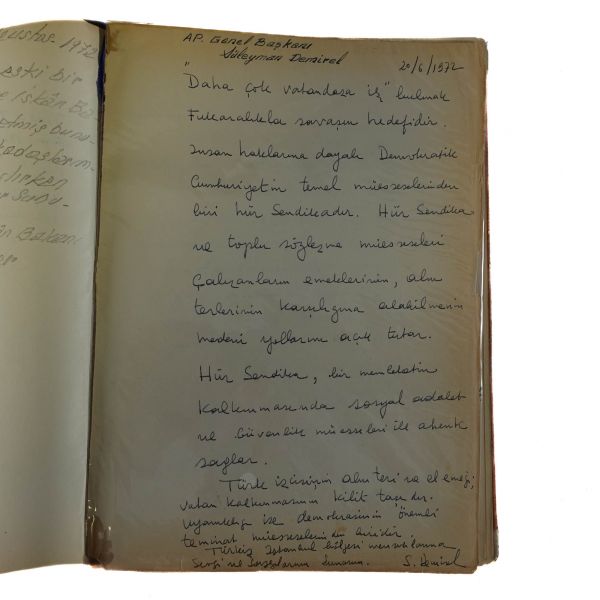 ğustos 1972
eski bir
e İskân Ba
etmiş bunu-
kadaşlarım-
alırken
r Sunu-
ân Bakanı
AP. Genel Başkanı
Süleyman Demirel
20/6/1972
"Daha çok vatandaşa iş" bulmak
Fukaralıkla savaşın hedefidir.
İnsan haklarına dayalı Demokratik
Cumhuriyetin temel müesseselerinden
biri hür Sendikadır. Hür Sendika
ve toplu sözleşme müesseseleri
Çalışanların emeklerinin, alın
terlerinin karşılığını alabilmenin
medeni yollarını açık tutar.
Hür Sendika, bir memleketin
kalkınmasında sosyal adalet
ve Güvenlik müesseseleri ile ahenk
sağlar.
Türk işçisinin alın teri ve el emeği,
vatan kalkınmasının kilit taşıdır.
uyanıklığı ise demokrasinin önemli
teminat müesseselerinden biridir.
Türkiş İstanbul bölgesi mensuplarına
Sevgi ve saygılarımı sunarım. S. Demirel